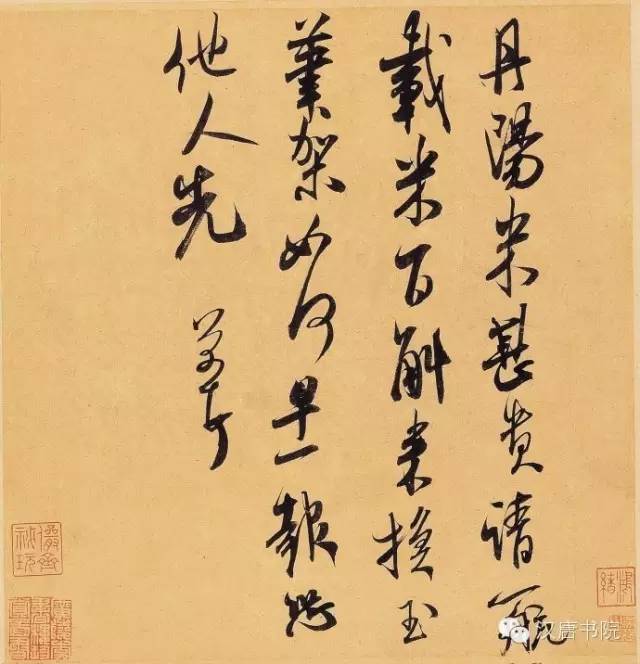 丹陽米甚貴請一航
載米百斛來換玉
筆架如何早一報恐
他人先
芾頓首
儼齋秘玩
鴻緒
汉唐书院